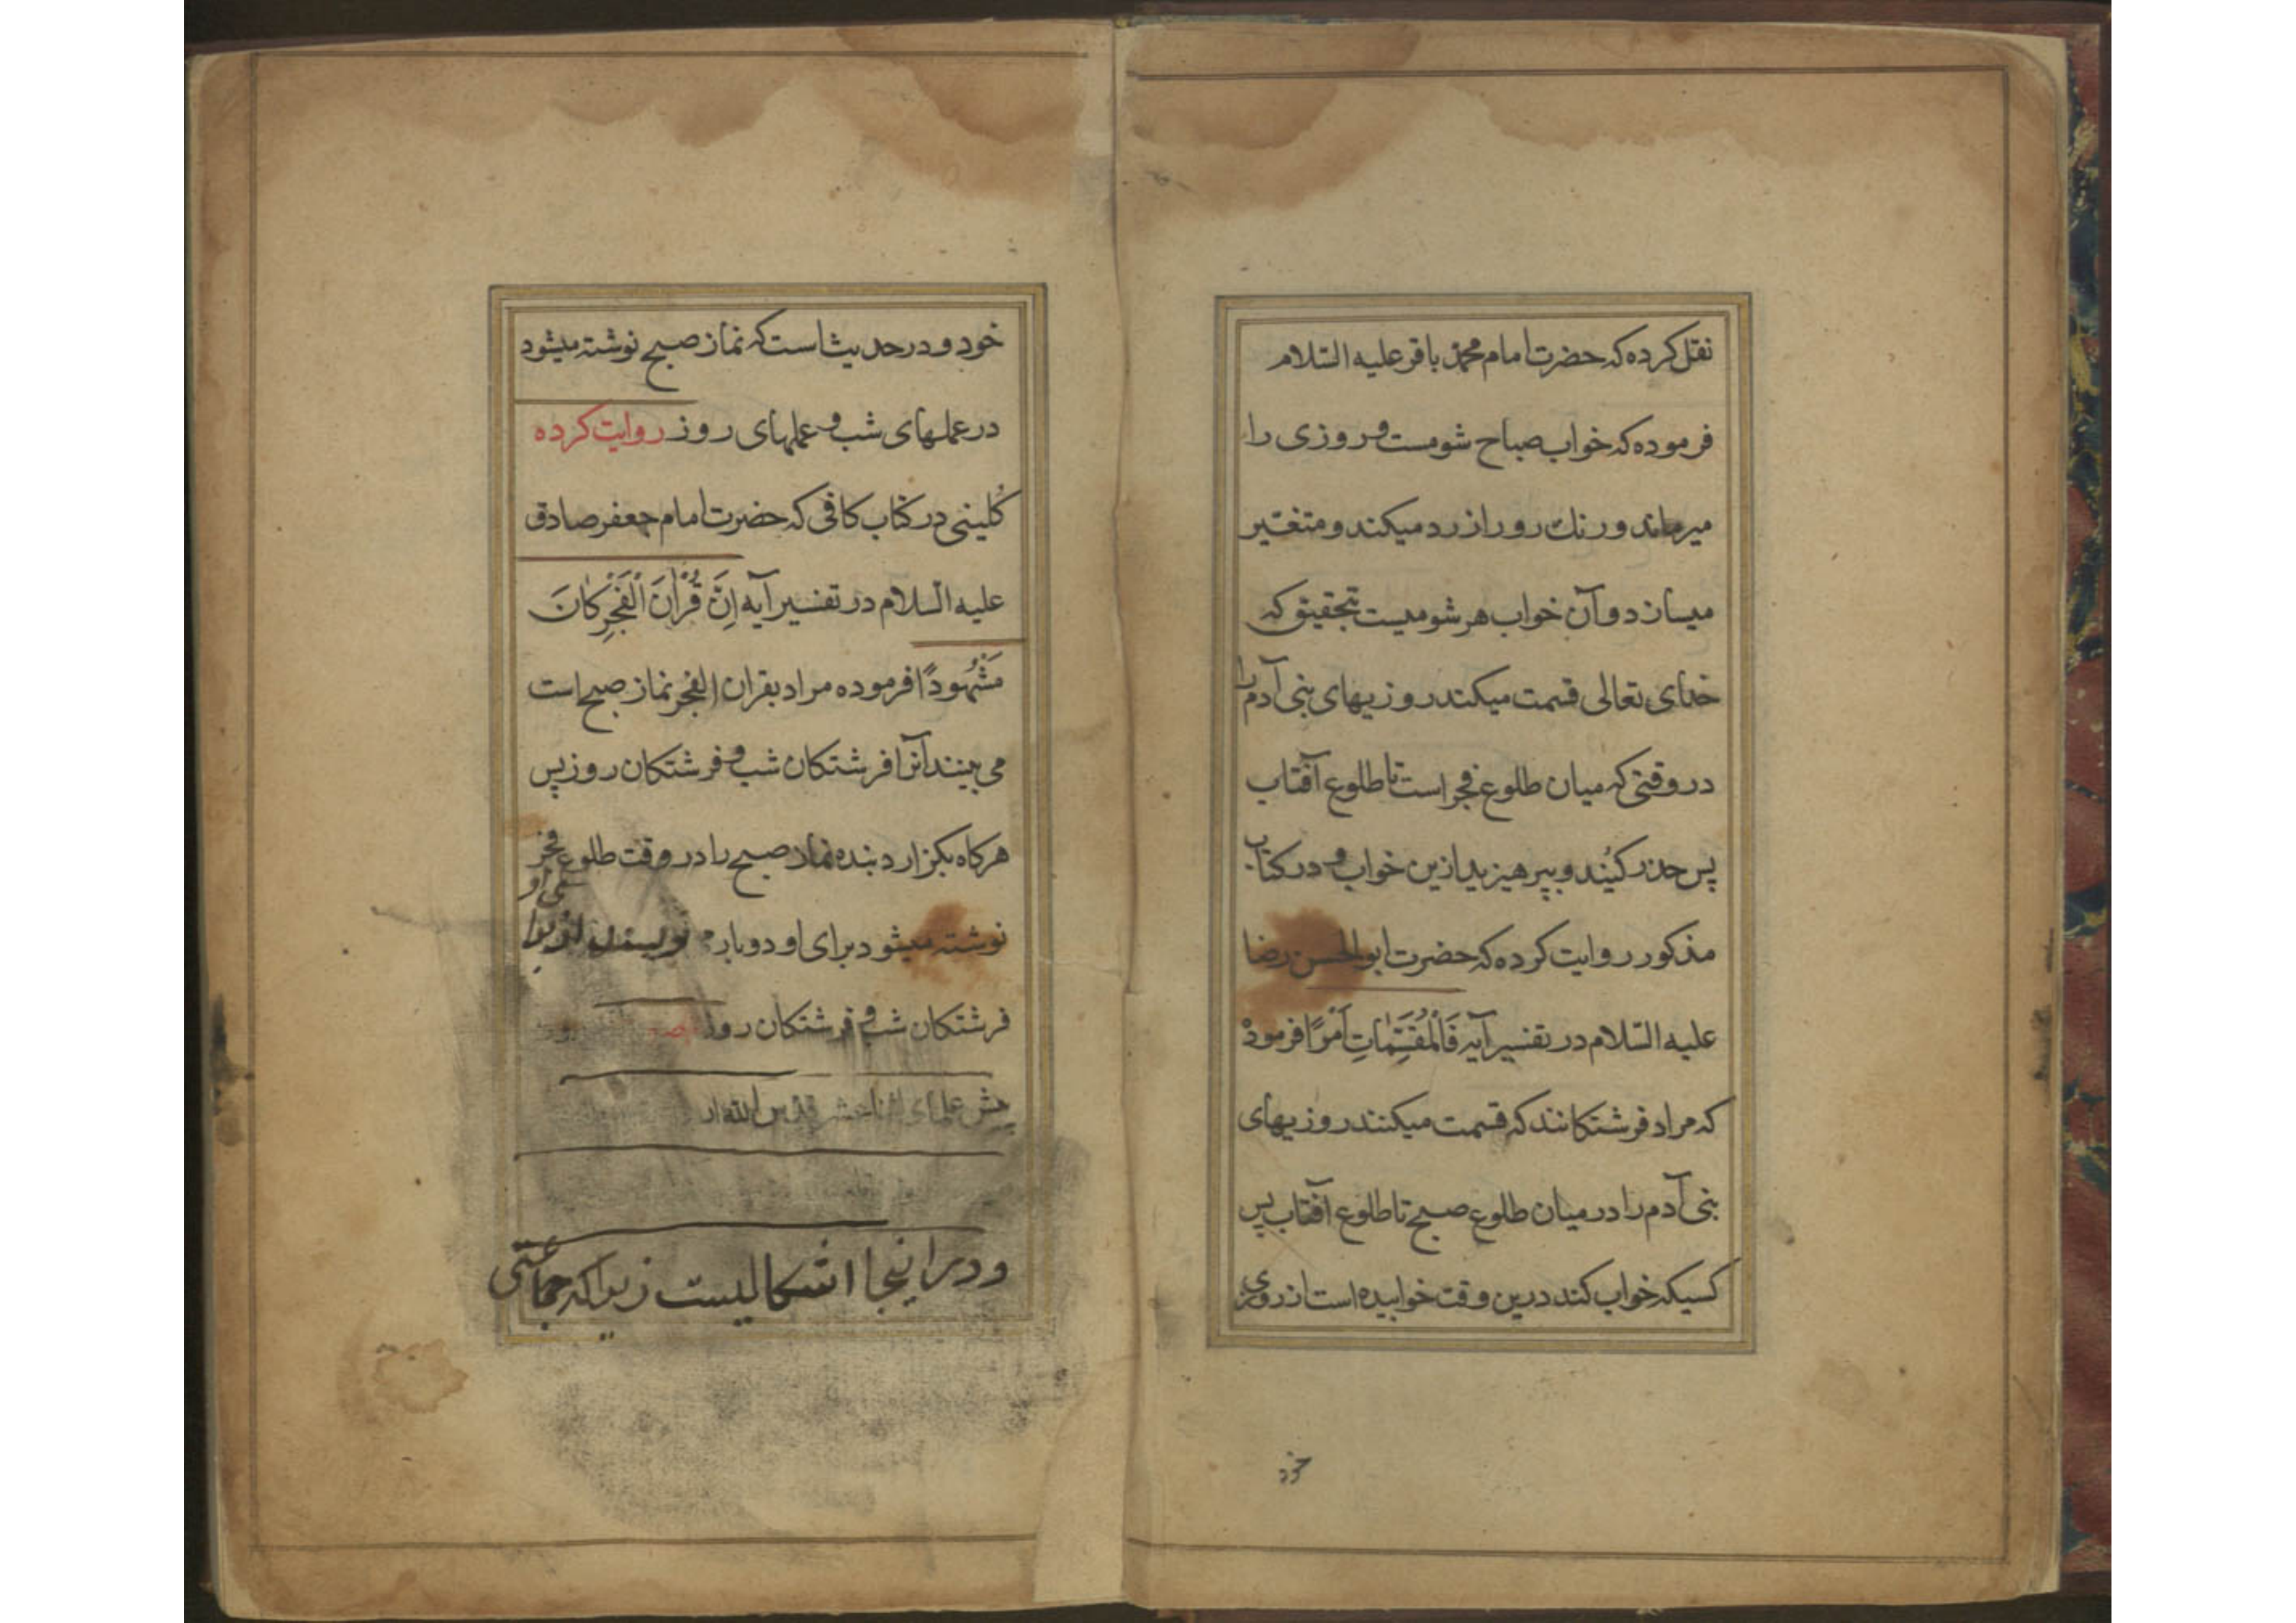 نقل کرده که حضرت امام محمد باقر علیه السّلام
فرموده که خواب صباح شومست و روزی را
میرماند و رنك رو را زرد میکند و متغیّر
میسازد و آن خواب هر شومیست بتحقیق که
خدای تعالی قسمت میکند روزیهای بنی آدم را
در وقتی که میان طلوع فجر است تا طلوع آفتاب
پس حذر کنُید و بپرهیزید ازین خواب و در کتاب
مذکور روایت کرده که حضرت ابوالحسن رضا
علیه السّلام در تفسیر آیه فَالْمُقَسِّمٰاتِ اَمْرًا فرموده
که مراد فرشتکانند که قسمت میکنند روزیهای
بنی آدم را در میان طلوع صبح تا طلوع آفتاب پس
کسیکه خواب کند درین وقت خوابیده است از روزی
خود
خود و در حدیث است که نماز صبح نوشته میشود
در عملهای شب و عملهای روز روایت کرده
کُلینی در کتاب کافی که حضرت امام جعفر صادق
علیه السّلام در تفسیر آیه اِنَّ قُرْاٰنَ اَلْفَجْرِ کٰانَ
مَشْهُودًا فرموده مراد بقران الفجر نماز صبح است
می بینند آنرا فرشتکان شب و فرشتکان روز پس
هرکاه بکزارد بنده نماز صبح را در وقت طلوع فجر
نوشته میشود برای او دوبار
فرشتکان شب و فرشتکان روز
علمای اثنا عشر الله
و در اینجا اشکالیست زیرا که جماعتی